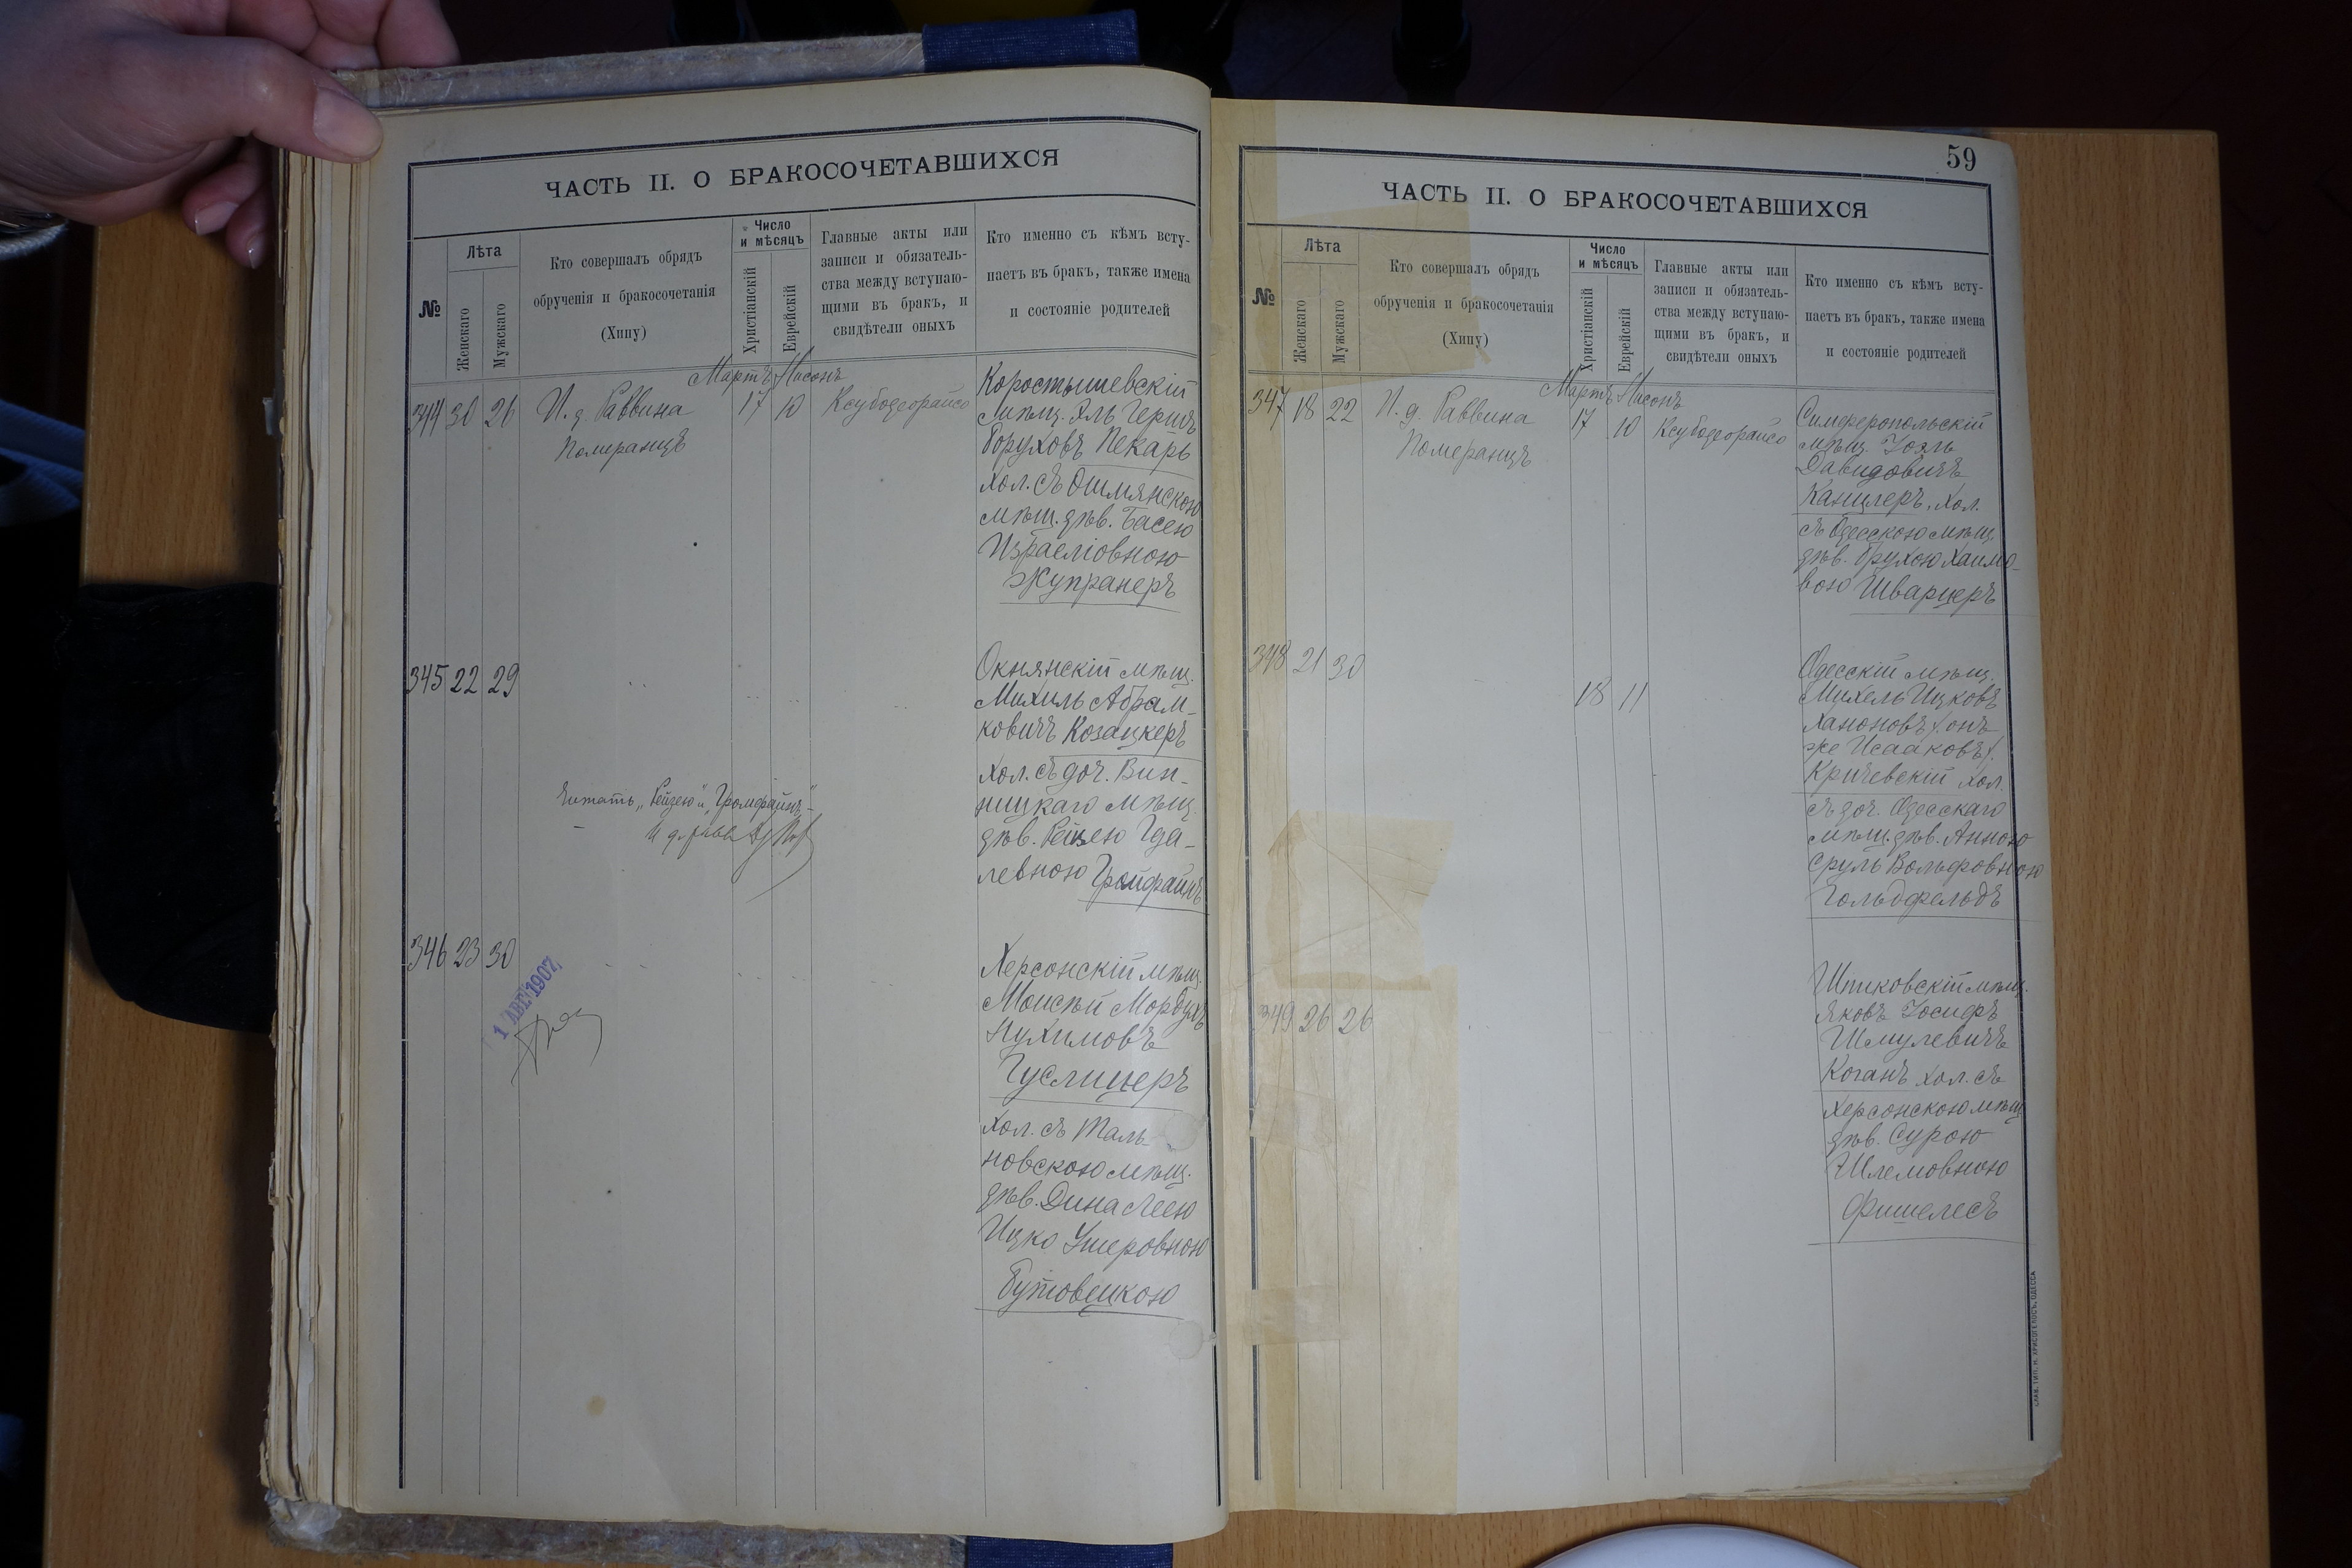 ЧАСТЬ II. О БРАКОСОЧЕТАВШИХСЯ
№
Лѣта
Женскаго
Мужскаго
Кто совершалъ обрядъ
обрученія и бракосочетанія
(Хипу)
Число
и мѣсяцъ
Христіанскій
Еврейскій
Главные акты или
записи и обязатель-
ства между вступаю-
щими въ бракъ, и
свидѣтели оныхъ
Кто именно съ кѣмъ всту-
паетъ въ бракъ, также имена
и состояніе родителей
Мартъ Нисонъ
344 30 26 И. д. Раввина 17 10 Ксубодеорайсо
Померанцъ
Коростышевскій
мѣщ. Эль Гершъ
Боруховъ Пекарь
хол. съ Ошмянскою
мѣщ. дѣв. Басею
Израеліовною
Жупранеръ
345 22 29
Окнянскій мѣщ.
Михиль Абрам-
ковичъ Козацкеръ
хол. съ доч. Вин-
ницкаго мѣщ.
дѣв. Рейзею Гда-
левною Гройфайнъ
Читать „Рейзею" и „Гройфайнъ"-
И д. равв
346 23 30
1 АВГ 1907
Херсонскій мѣщ.
Моисѣй Мордухъ
Нухимовъ
Гуслицеръ
хол. съ Таль-
новскою мѣщ.
дѣв. Дина Леею
Ицко Ушеровною
Бутовецкою
59
ЧАСТЬ II. О БРАКОСОЧЕТАВШИХСЯ
№
Лѣта
Женскаго
Мужскаго
Кто совершалъ обрядъ
обрученія и бракосочетанія
(Хипу)
Число
и мѣсяцъ
Христіанскій
Еврейскій
Главные акты или
записи и обязатель-
ства между вступаю-
щими въ бракъ, и
свидѣтели оныхъ
Кто именно съ кѣмъ всту-
паетъ въ бракъ, также имена
и состояніе родителей
Мартъ Нисонъ
347 18 22 И. д. Раввина 17 10 Ксубодеорайсо
Померанцъ
Симферопольскій
мѣщ. Іоэль
Давидовичъ
Канцлеръ, хол.
съ Одесскою мѣщ.
дѣв. Брухою Хаимо-
вою Шварцеръ
348 21 30 18 11
Одесскій мѣщ.
Михель Ицковъ
Ханоновъ (онъ
же Исааковъ)
Кричевскій хол.
съ доч. Одесскаго
мѣщ. дѣв. Анною
Сруль Вольфовною
Гольдфельдъ
349 26 26
Шпиковскій мѣщ.
Яковъ Іосифъ
Шмулевичъ
Коганъ хол. съ
Херсонскою мѣщ
дѣв. Сурою
Шлемовною
Фишелесъ
СЛАВ. ТИП. Н. ХРИСОГЕЛОСЪ, ОДЕССА